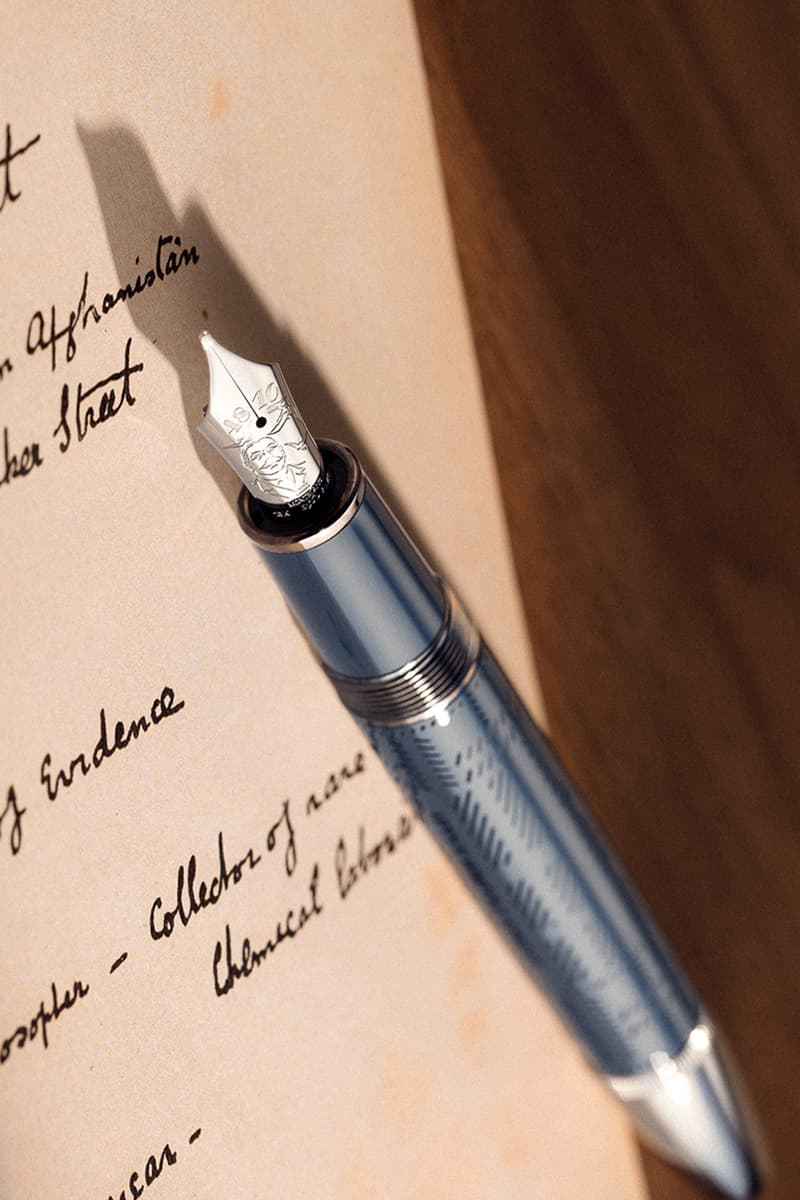 t
n Afghanistan
ker Street
of Evidence
osopher – Collector of rare
Chemical labora